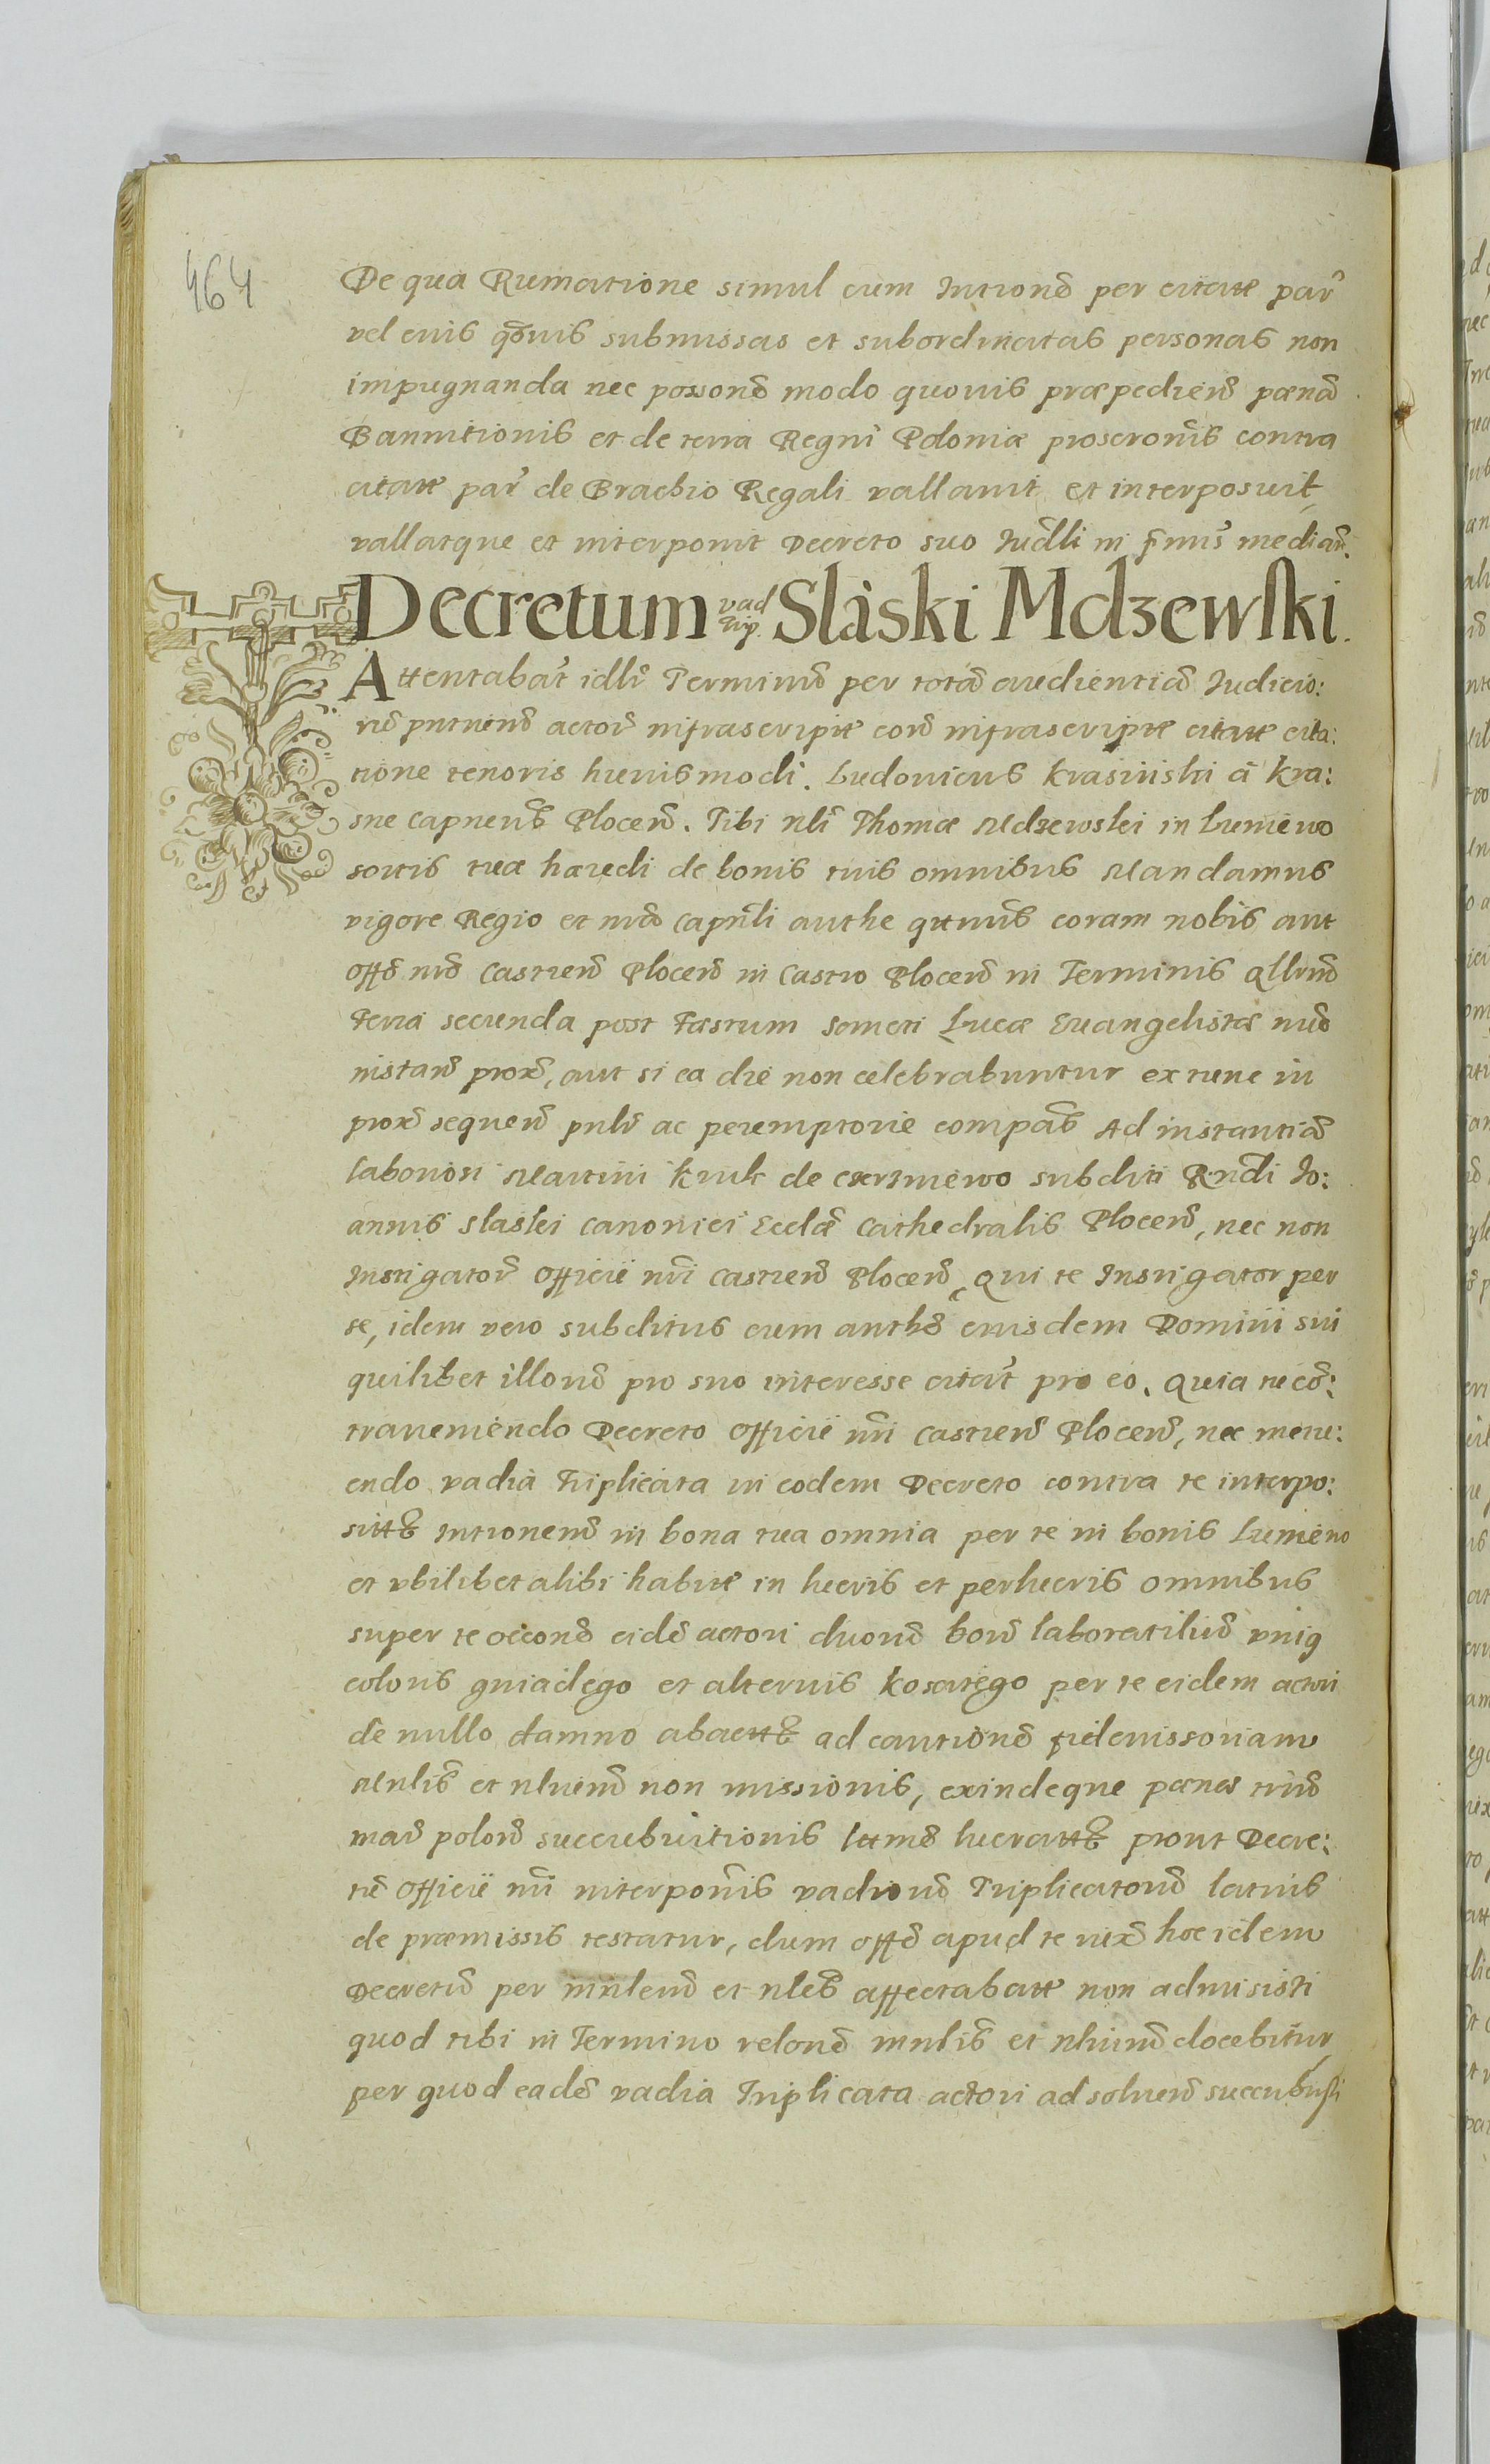 464
De qua Rumatione simul cum Intionẽ per citatæ par̃
vel eius quõuis submissas et subordinatas personas non
impugnanda nec possonẽ modo quouis præpedieñ pænã
Bannitionis et de terra Regni Poloniæ proscronĩs contra
citatæ par̃ de Brachio Regali vallauit et interposuit
vallatque et interponit Decreto suo Iudlli in mediañ.
Decretum vad trip. Slàski Mdzewski.
Attentabat̃ idlr̃ Terminũ per totã audientiã Iudicio:
rũ actorũ infrascriptæ corã infrascriptæ citatæ cita:
tione tenoris huiusmodi. Ludouicus Krasiński à Kra:
sne Capneũs Ploceñ. Tibi nli Thomæ Mdzewski in Łuniewo
sortis tuæ hæredi de bonis tuis omnibus Mandamus
vigore Regio et nrõ Capnli authe qtnus coram nobis aut
offõ nrõ Castreñ Ploceñ in Castro Ploceñ in Terminis Qllrũ
Feria secunda post Fæstum Sancti Lucæ Euangelistæ nuñ
instañ prox̃, aut si ea die non celebrabuntur extunc in
prox̃ sequeñ pnlr̃ ac peremptorie compas̃ Ad instantiã
laboriosi Martini Kruk de subditi Rndi Io:
annis Slaski Canonici Ecclæ Cathedralis Ploceñ, nec non
Instigatoris̃ Officii nri Castreñ Ploceñ, Qui te Instigator per
se, idem vero subditus cum authẽ eiusdem Domini sui
quilibet illorũ pro suo interesse citat̃ pro eo. Quia tu cõ:
traueniendo Decreto Officii nri Castreñ Ploceñ, nec metu:
endo vadia Triplicata in eodem Decreto contra te interpo:
sittæ Intioneñ in bona tua omnia per te in bonis Łuniewo
et vbilibet alibi habitæ in lucris et perlucris omnibus
super te occonẽ eidẽ actori duorũ boũ laboratiliũ vnius
coloris gniadego et alterius kosatego per te eidem actori
de nullo damno abacttæ ad cautionẽ fideiussoriam
Mnlis̃ et nluieñ non missionis, exindeque pænas triũ
marc̃ poloñ succubuitionis lucrattæ prout Decre:
tũ Officii nri interponĩs vadiorũ Triplicatorũ latius
de præmissis testatur, dum offõ apud te iux̃ hoc idem
Decretũ per mnleñ et nles̃ affectabatæ non admisisti
quod tibi in Termino relonẽ mnlis̃ et nluinũ docebitur
per quod eadẽ vadia Triplicata actori ad solueñ succubusti